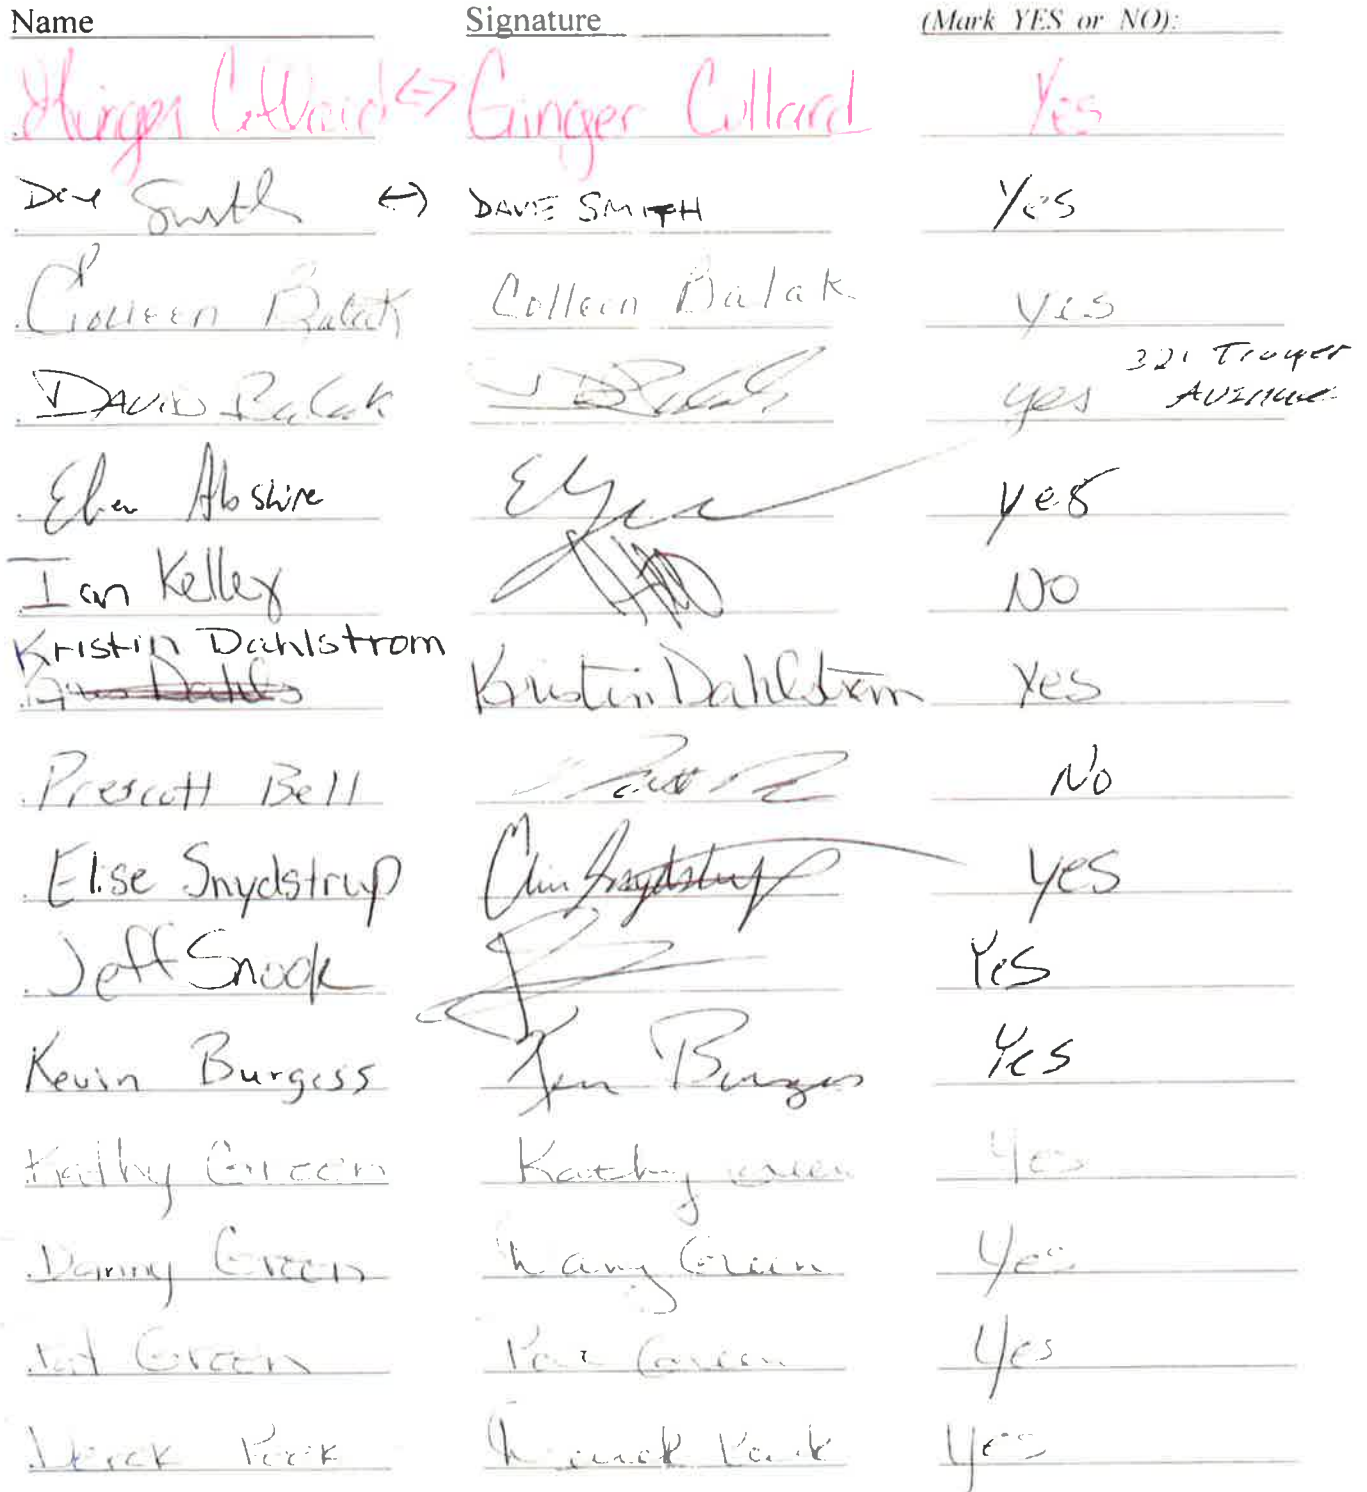 Name Signature (Mark YES or NO):
Ginger Collard <-> Ginger Collard Yes
Dave Smith <-> DAVE SMITH Yes
Colleen Balak Colleen Balak Yes
DAVID Balak DBalak yes 321 Troyer
AVENUE
Absire yes
Ian Kelley NO
Kristin Dahlstrom
Dahls Kristin Dahlstrom Yes
Prescott Bell No
Elise Snydstrup Snydstrup yes
Jeff Snook Yes
Kevin Burgess Burges Yes
Kathy Green Kathy Green Yes
Danny Green Danny Green Yes
Pat Green Pat Green Yes
Derek Park Derek Park Yes